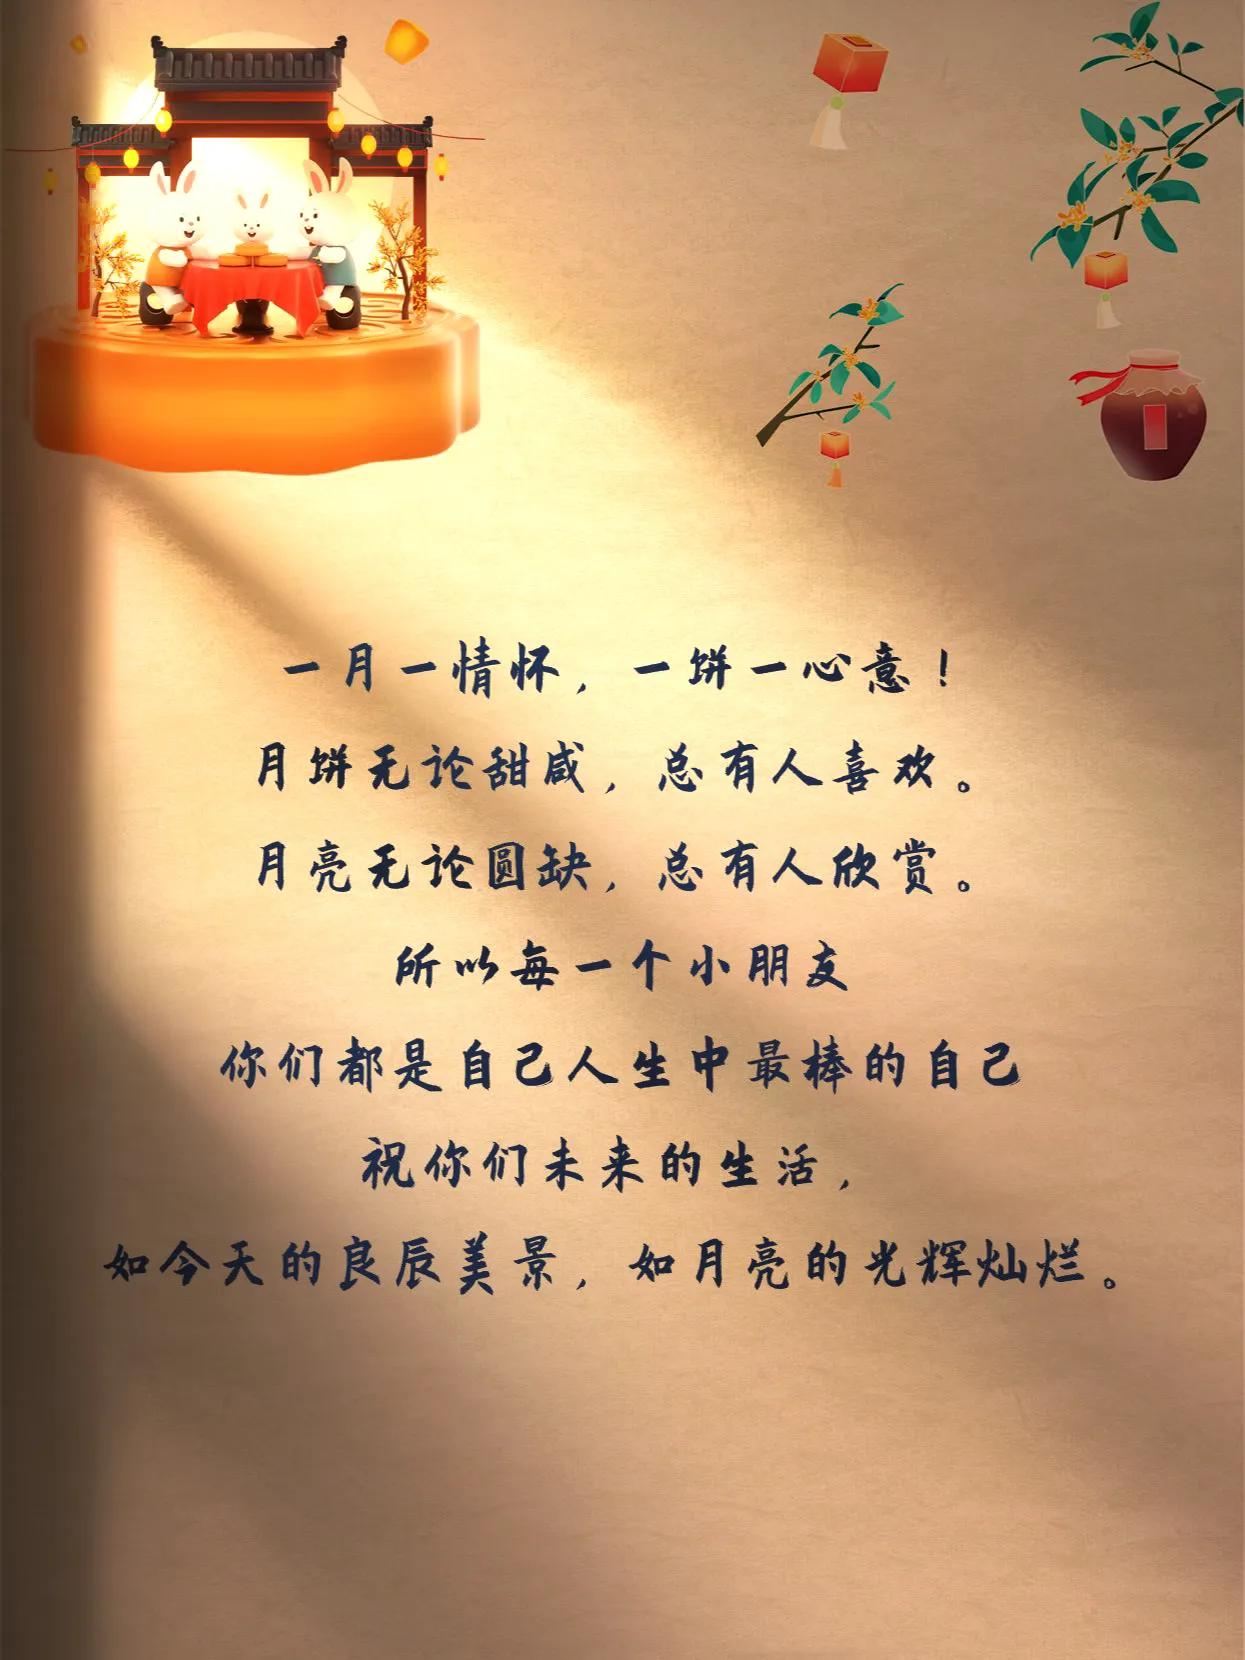 一月一情怀，一饼一心意！
月饼无论甜咸，总有人喜欢。
月亮无论圆缺，总有人欣赏。
所以每一个小朋友
你们都是自己人生中最棒的自己
祝你们未来的生活，
如今天的良辰美景，如月亮的光辉灿烂。